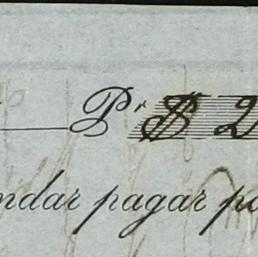 Pr $ 2
ndar pagar p